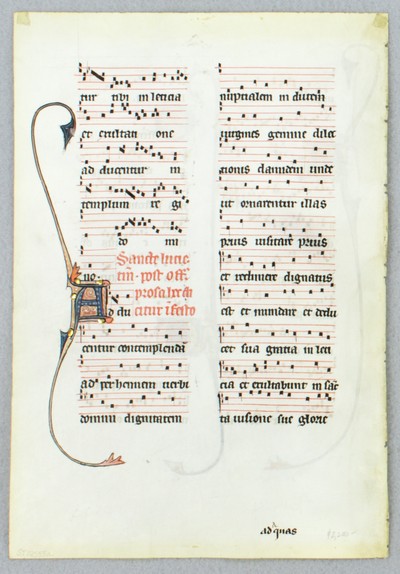 tur tibi in leticia
et exultati one
ad ducentur in
templum re gi
do mi
Sancte lucie
no.
prosa
d du citur i festo
centur contemplendā
ad perhennem verbi
domini dignitatem
nuptialem in ducem
virgines gemine dilec
tionis clamidem unde
ut ornarentur illas
prius visitare prius
et redimere dignatus
est et mundare et dedu
cet sua gratia in leti
cia et exultabunt in sāc
ta visione sue glorie
ad quas